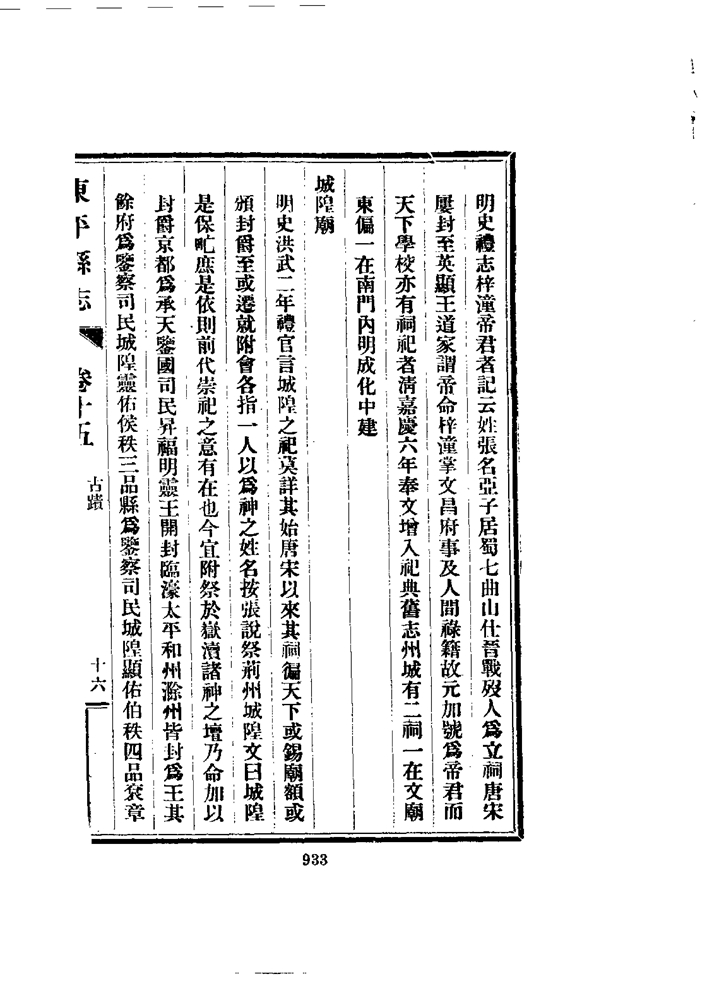 明史禮志梓潼帝君者記云姓張名亞子居蜀七曲山仕晉戰歿人爲立祠唐宋
屢封至英顯王道家謂帝命梓潼掌文昌府事及人間祿籍故元加號爲帝君而
天下學校亦有祠祀者淸嘉慶六年奉文增入祀典舊志州城有二祠一在文廟
東偏一在南門內明成化中建
城隍廟
明史洪武二年禮官言城隍之祀莫詳其始唐宋以來其祠徧天下或錫廟額或
頒封爵至或遷就附會各指一人以爲神之姓名按張說祭荊州城隍文曰城隍
是保甿庶是依則前代崇祀之意有在也今宜附祭於嶽瀆諸神之壇乃命加以
封爵京都爲承天鑒國司民昇福明靈王開封臨濠太平和州滁州皆封爲王其
餘府爲鑒察司民城隍靈佑侯秩三品縣爲鑒察司民城隍顯佑伯秩四品袞章
東平縣志 卷十五 古蹟 十六
933